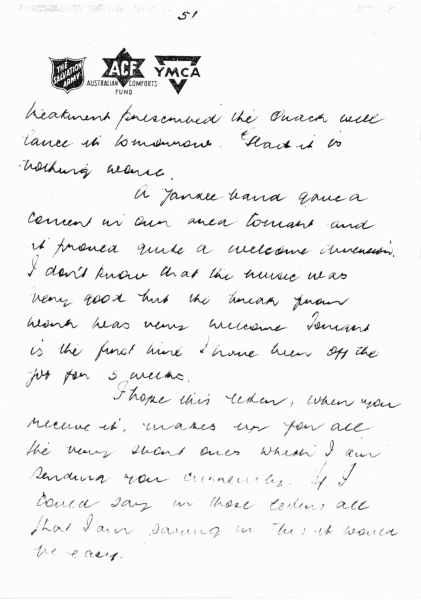 51
THE SALVATION ARMY
ACF
AUSTRALIAN COMFORTS FUND
YMCA
treatment prescribed the Quack will
lance it tomorrow. Glad it is
nothing worse.
A Yankee band gave a
concert in our area tonight and
it proved quite a welcome diversion.
I don't know that the music was
very good but the break from
work was very welcome. Tonight
is the first time I have been off the
job for 3 weeks.
I hope this letter, when you
receive it, makes up for all
the very short ones which I am
sending you currently. If I
could say in those letters all
that I am saying in this it would
be easy.